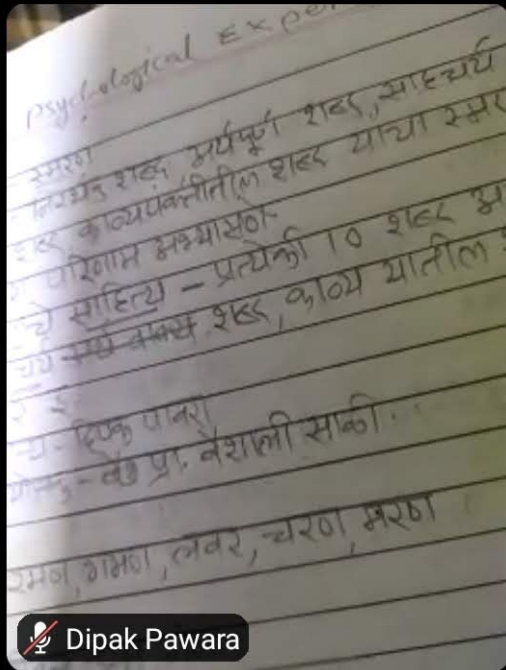 psychological Exper
स्मरण
निरर्थक शब्द, अर्थपूर्ण शब्द, साहचर्य
शब्द, काव्यपंक्तीतील शब्द यांचा स्मर
परिणाम अभ्यासणे.
चे साहित्य - प्रत्येकी 10 शब्द अ
शब्द, काव्य यातील
दिपक पावरा
प्रा. वैशाली साळी.
रमन, गमण, लवर, चरण, मरण
Dipak Pawara